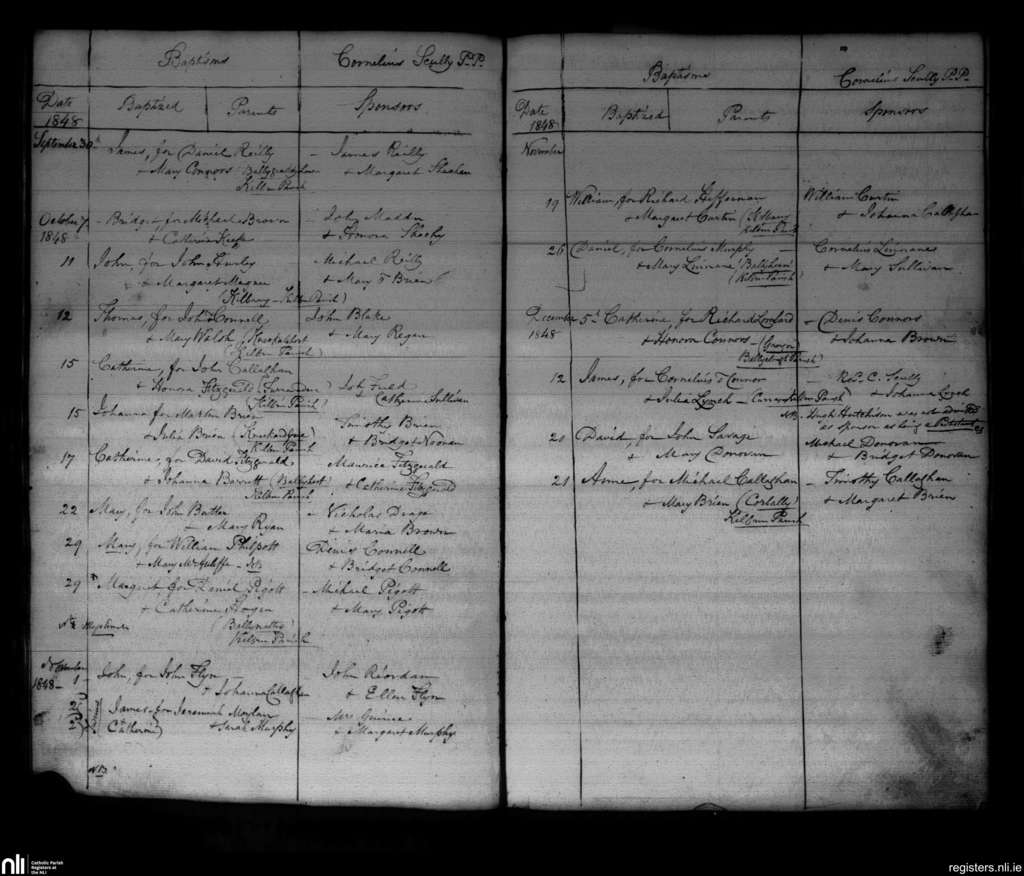 Baptisms
Cornelius Scully P.P.
Date
1848
Baptized
Parents
Sponsors
September 30th James, for Daniel Reilly - James Reilly
+ Mary Connors + Margaret Sheahan
Kilbrin Parish
October 7 - Bridget, for Michael Brown - John Madden
1848 + Catherine Keefe + Honora Sheehy
11 John, for John Michael Reilly
+ Margaret Magner + Mary O Brien
(Kilbrin Parish)
12 Thomas, for John O Connell John Blake
+ Mary Walsh + Mary Regan
(Kilbrin Parish)
15 Catherine, for John Callaghan
+ Honora Fitzgerald Field
(Kilbrin Parish) Catherine Sullivan
15 Johanna for Martin Brien Timothy Brien
+ Julia Brien + Bridget Noonan
Kilbrin Parish
17 Catherine, for David Fitzgerald Maurice Fitzgerald
+ Johanna Barrett + Catherine Fitzgerald
Kilbrin Parish
22 Mary, for John Butler - Nicholas Drape
+ Mary Ryan + Maria Brown
29 Mary, for William Philpott Denis Connell
+ Mary McAuliffe - NB + Bridget Connell
29 Margaret, for Daniel Pigott - Michael Pigott
+ Catherine Horgan + Mary Pigott
Kilbrin Parish
November
1848 - 1 - John, for John Flyn John Riordan
+ Johanna Callaghan + Ellen Flyn
2 James, for Jeremiah Moylan - Mrs.
2 Catherine + Sarah Murphy + Margaret Murphy
NB
Baptisms
Cornelius Scully P.P.
Date
1848
Baptized
Parents
Sponsors
November
19 William, for Richard Heffernan William Curtin
+ Margaret Curtin + Johanna Callaghan
Kilbrin Parish
26 Daniel, for Cornelius Murphy - Cornelius Linnane
+ Mary Linnane + Mary Sullivan
(Kilbrin Parish)
December 5th Catherine for Richard Lombard - Denis Connors
1848 + Honora Connors + Johanna Brown
12 James, for Cornelius O Connor - Revd. C. Scully
+ Julia Lynch + Johanna Lynch
NB. Hugh Hutchison was not admitted
as sponsor as being a
20 David, for John Savage Michael Donovan
+ Mary Donovan + Bridget Donovan
21 Anne, for Michael Callaghan - Timothy Callaghan
+ Mary Brien + Margaret Brien
Kilbrin Parish
nli
Catholic Parish
Registers at
the NLI
registers.nli.ie